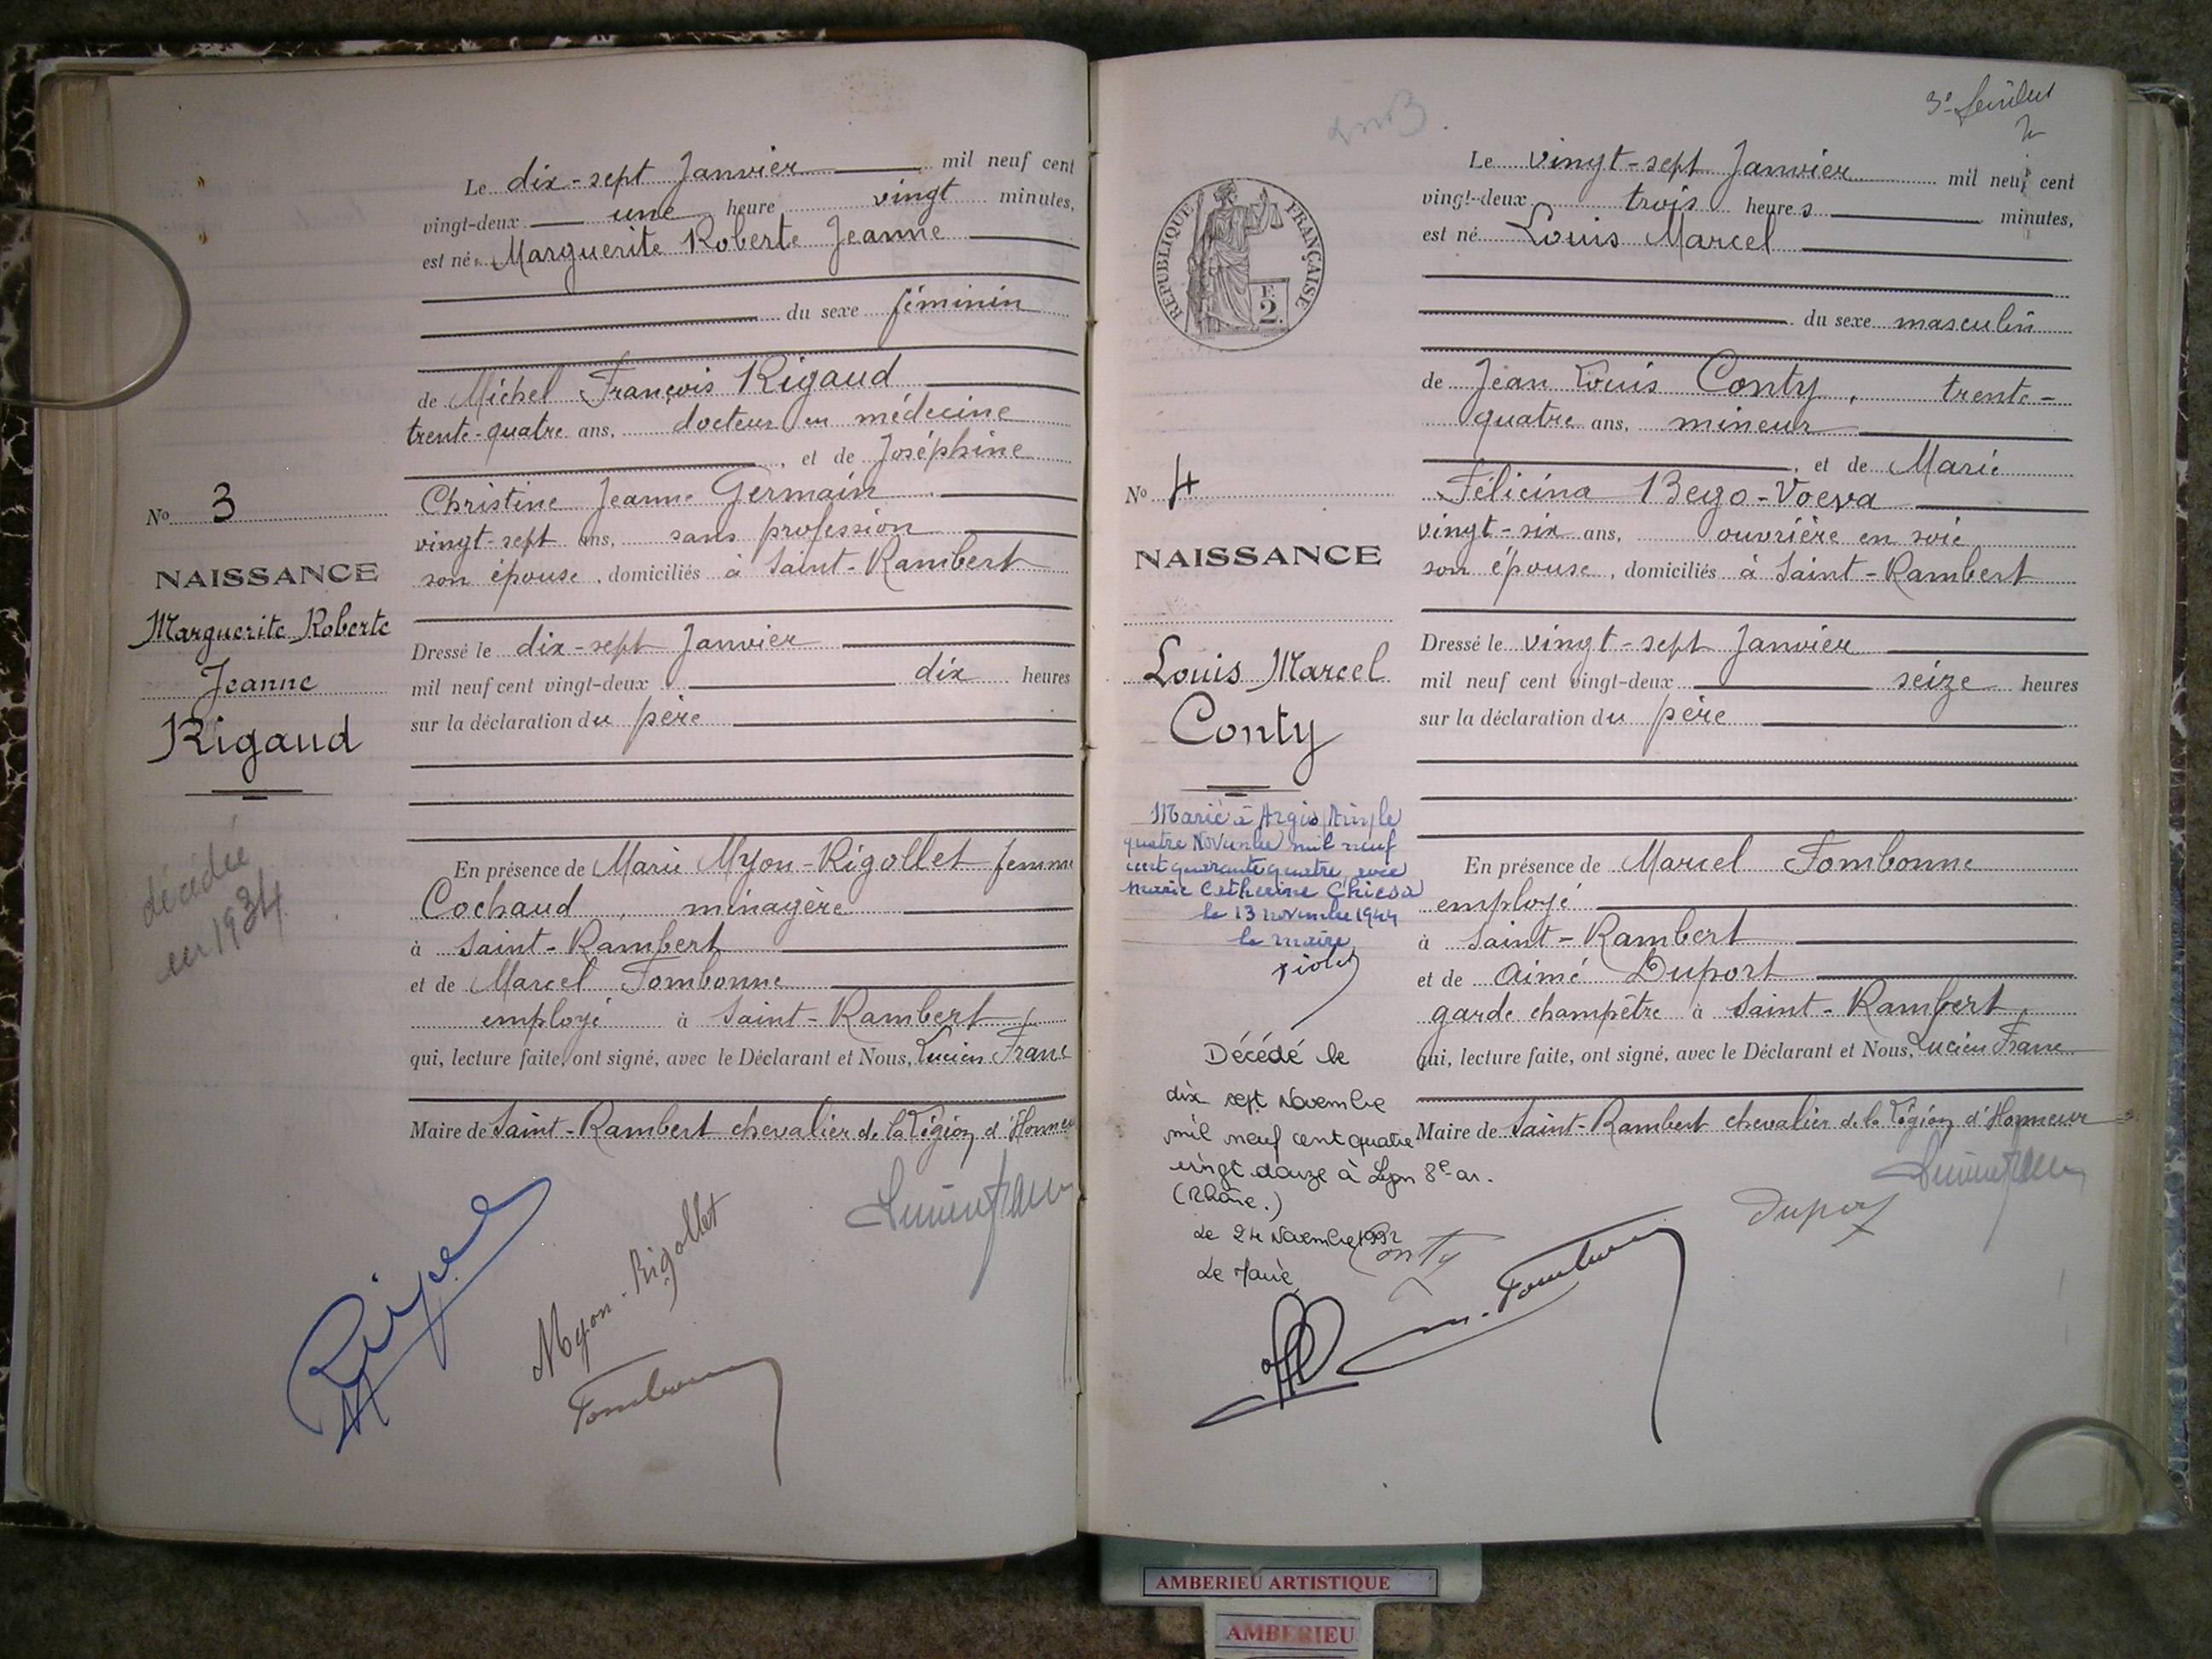 Le dix-sept Janvier mil neuf cent
vingt-deux une heure vingt minutes,
est née Marguerite Roberte Jeanne
du sexe féminin
de Michel François Rigaud
trente-quatre ans, docteur en médecine
, et de Joséphine
Christine Jeanne Germain
vingt-sept ans, sans profession
son épouse, domiciliés à Saint-Rambert
Dressé le dix-sept Janvier
mil neuf cent vingt-deux dix heures
sur la déclaration du père
En présence de Marie Myon-Rigollet femme
Cochaud, ménagère
à Saint-Rambert
et de Marcel Tombonne
employé à Saint-Rambert
qui, lecture faite, ont signé, avec le Déclarant et Nous, Lucien Franc
Maire de Saint-Rambert chevalier de la Légion d'Honneur
No 3
NAISSANCE
Marguerite Roberte
Jeanne
Rigaud
décédée
en 1934
Myon-Rigollet
Tombonne
3e feuillet
REPUBLIQUE FRANÇAISE
F.
2.
Le vingt-sept Janvier mil neuf cent
vingt-deux trois heures minutes,
est né Louis Marcel
du sexe masculin
de Jean Louis Conty, trente-
quatre ans, mineur
, et de Marie
Félicina Bego-Voeva
vingt-six ans, ouvrière en soie
son épouse, domiciliés à Saint-Rambert
Dressé le vingt-sept Janvier
mil neuf cent vingt-deux seize heures
sur la déclaration du père
En présence de Marcel Tombonne
employé
à Saint-Rambert
et de Aimé Duport
garde champêtre à Saint-Rambert
qui, lecture faite, ont signé, avec le Déclarant et Nous, Lucien Franc
Maire de Saint-Rambert chevalier de la Légion d'Honneur
No 4
NAISSANCE
Louis Marcel
Conty
Marié à Argis (Ain) le
quatre Novembre mil neuf
cent quarante quatre, avec
Marie Catherine Chiesa
le 13 novembre 1944
le maire
Décédé le
dix sept Novembre
mil neuf cent quatre
vingt douze à Lyon 8e ar.
(Rhône.)
Le 24 Novembre 1992
Le Maire
Conty
Duport
m. Tombonne
AMBERIEU ARTISTIQUE
AMBERIEU